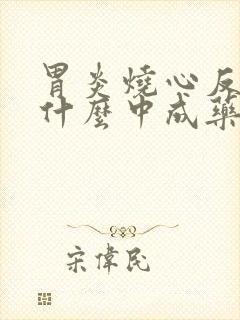 胃炎燒心反
什麼中成藥
宋偉民